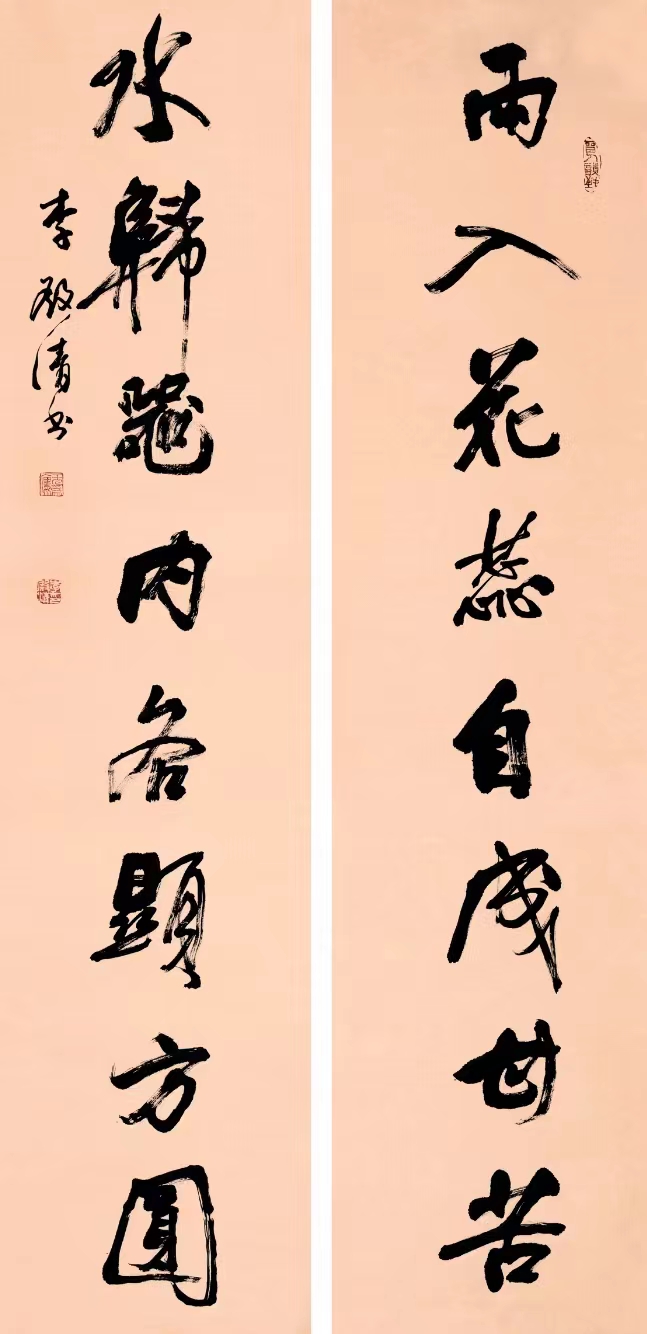 雨入花蕊自成甘苦
水歸器内各顯方圓
李啟清书